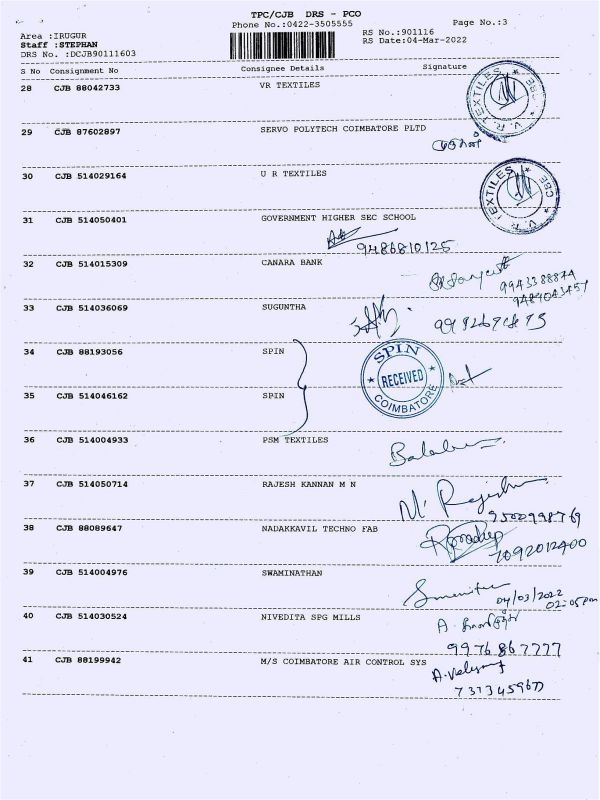 TPC/CJB DRS - PCO
Phone No.:0422-3505555
Page No.:3
Area :IRUGUR
Staff :STEPHAN
DRS No. :DCJB90111603
RS No.:901116
RS Date:04-Mar-2022
S No Consignment No Consignee Details Signature
28 CJB 88042733 VR TEXTILES
V. R. TEXTILES * CBE *
29 CJB 87602897 SERVO POLYTECH COIMBATORE PLTD
30 CJB 514029164 U R TEXTILES
V. R. TEXTILES * CBE *
31 CJB 514050401 GOVERNMENT HIGHER SEC SCHOOL
9486810125
32 CJB 514015309 CANARA BANK
33 CJB 514036069 SUGUNTHA
34 CJB 88193056 SPIN
SPIN
RECEIVED
COIMBATORE
35 CJB 514046162 SPIN
36 CJB 514004933 PSM TEXTILES
37 CJB 514050714 RAJESH KANNAN M N
9500998769
38 CJB 88089647 NADAKKAVIL TECHNO FAB
7092012400
39 CJB 514004976 SWAMINATHAN
04/03/2022
02:05pm
40 CJB 514030524 NIVEDITA SPG MILLS
9976867777
41 CJB 88199942 M/S COIMBATORE AIR CONTROL SYS